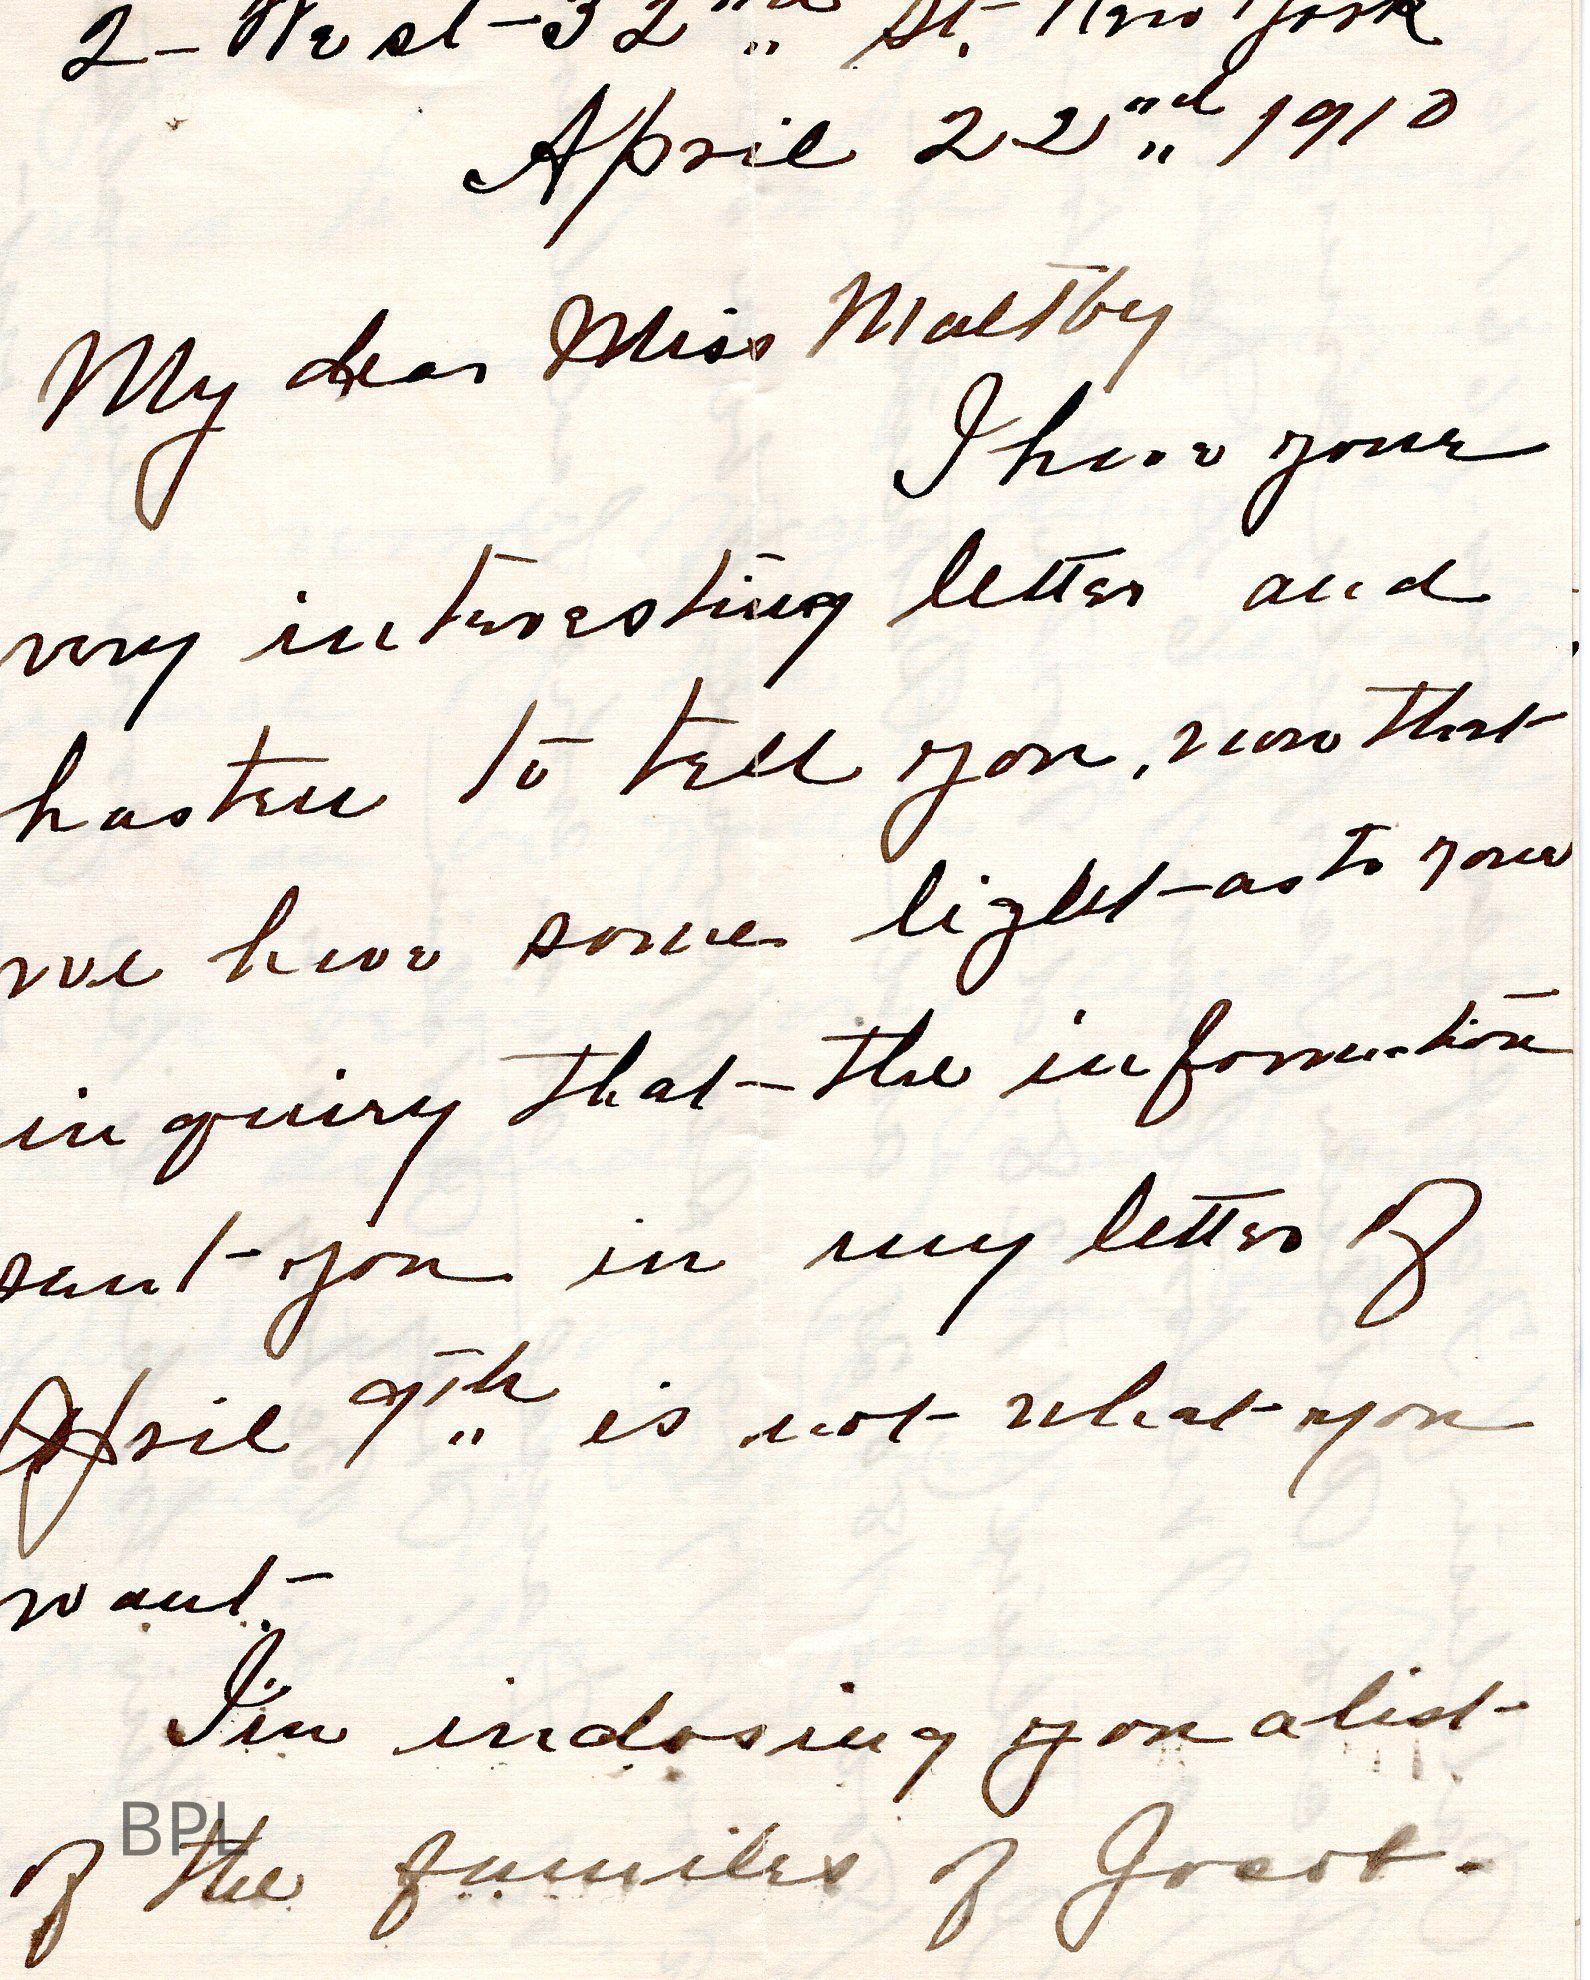 2 - West - 32nd St. New York
April 22nd 1910
My dear Miss Maltby
I have your
very interesting letter and
hasten to tell you, now that
we have some light as to your
inquiry that the information
sent you in my letter of
April 9th is not what you
want.
I'm inclosing you a list
of the families of
BPL